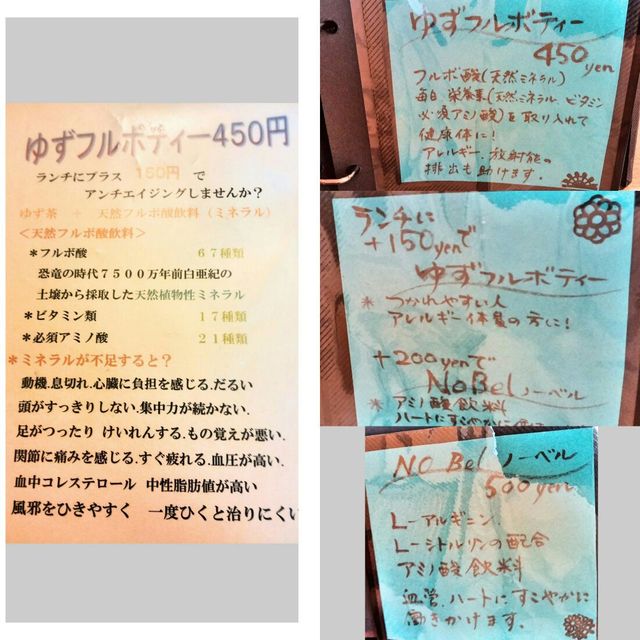 ゆずフルボティー450円
ランチにプラス 150円 で
アンチエイジングしませんか？
ゆず茶 ＋ 天然フルボ酸飲料（ミネラル）
＜天然フルボ酸飲料＞
＊フルボ酸 ６７種類
恐竜の時代７５００万年前白亜紀の
土壌から採取した天然植物性ミネラル
＊ビタミン類 １７種類
＊必須アミノ酸 ２１種類
＊ミネラルが不足すると？
動機.息切れ.心臓に負担を感じる.だるい
頭がすっきりしない.集中力が続かない.
足がつったり けいれんする.もの覚えが悪い.
関節に痛みを感じる.すぐ疲れる.血圧が高い.
血中コレステロール 中性脂肪値が高い
風邪をひきやすく 一度ひくと治りにくい
ゆずフルボティー
450yen
フルボ酸(天然ミネラル)
毎日 栄養素(天然ミネラル、ビタミン
必須アミノ酸)を取り入れて
健康体に!
アレルギー、放射能の
排出も助けます。
ランチに
+150yenで
ゆずフルボティー
* つかれやすい人
アレルギー体質の方に!
+200yenで
NoBelノーベル
* アミノ酸飲料
ハートにすこやかに
NO Bel ノーベル
500yen
L-アルギニン
L-シトルリンの配合
アミノ酸飲料
血管、ハートにすこやかに
働きかけます。